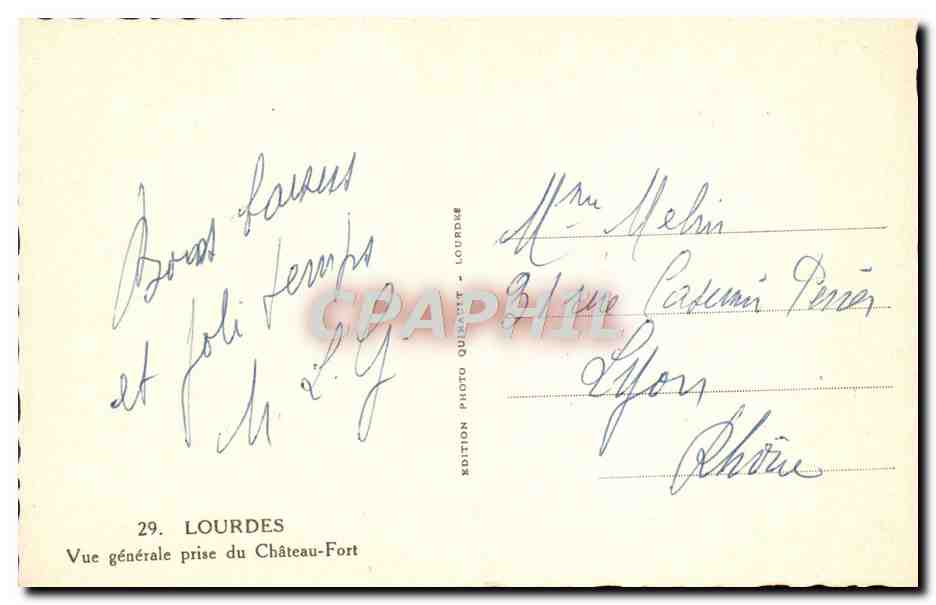 Bons baisers
et joli temps
M. L. G.
29. LOURDES
Vue générale prise du Château-Fort
EDITION PHOTO QUINAULT - LOURDES
CPAPHIL
Mme Melin
31 rue Casimir Perier
Lyon
Rhône